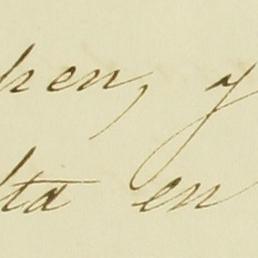 hen, y
lta en